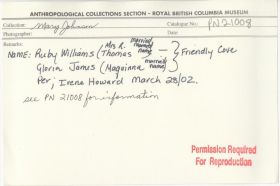 ANTHROPOLOGICAL COLLECTIONS SECTION - ROYAL BRITISH COLUMBIA MUSEUM
Collection: Mary Johnson Catalogue No.: PN 21008
Photographer: Date:
Remarks:
NAME: Ruby Williams (Mrs R. Thomas married name) — Friendly Cove
Gloria James (Maquinna married name)
Per; Irene Howard March 28/02.
see PN 21008 for information
Permission Required
For Reproduction